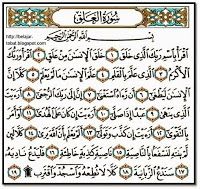 سُورَةُ الْعَلَقِ
http://belajar-
tobat.blogspot.com
بِسْمِ اللَّهِ الرَّحْمَٰنِ الرَّحِيمِ
اقْرَأْ بِاسْمِ رَبِّكَ الَّذِي خَلَقَ ١ خَلَقَ الْإِنسَانَ مِنْ عَلَقٍ ٢ اقْرَأْ وَرَبُّكَ
الْأَكْرَمُ ٣ الَّذِي عَلَّمَ بِالْقَلَمِ ٤ عَلَّمَ الْإِنسَانَ مَا لَمْ يَعْلَمْ ٥ كَلَّا إِنَّ
الْإِنسَانَ لَيَطْغَىٰ ٦ أَن رَّآهُ اسْتَغْنَىٰ ٧ إِنَّ إِلَىٰ رَبِّكَ الرُّجْعَىٰ ٨ أَرَأَيْتَ
الَّذِي يَنْهَىٰ ٩ عَبْدًا إِذَا صَلَّىٰ ١٠ أَرَأَيْتَ إِن كَانَ عَلَى الْهُدَىٰ ١١ أَوْ أَمَرَ
بِالتَّقْوَىٰ ١٢ أَرَأَيْتَ إِن كَذَّبَ وَتَوَلَّىٰ ١٣ أَلَمْ يَعْلَم بِأَنَّ اللَّهَ يَرَىٰ ١٤ كَلَّا لَئِن
لَّمْ يَنتَهِ لَنَسْفَعًا بِالنَّاصِيَةِ ١٥ نَاصِيَةٍ كَاذِبَةٍ خَاطِئَةٍ ١٦ فَلْيَدْعُ نَادِيَهُ
١٧ سَنَدْعُ الزَّبَانِيَةَ ١٨ كَلَّا لَا تُطِعْهُ وَاسْجُدْ وَاقْتَرِب ١٩